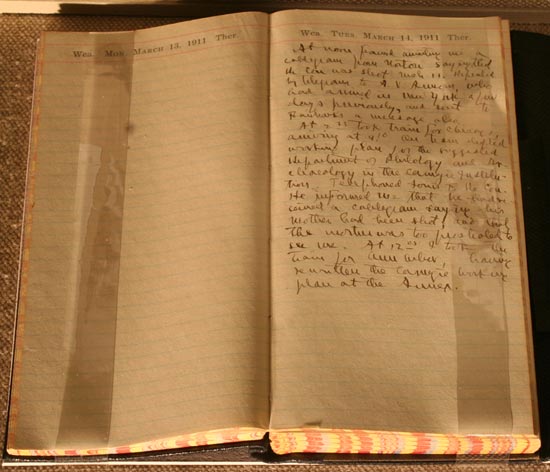 Wes. Mon March 13, 1911 Ther.
Wes. Tues March 14, 1911 Ther.
At noon found awaiting me a
cablegram from Norton saying that
De Cou was shot Mch 11. Repeated
by telegram to A V Duncan, who
had arrived in New York a few
days previously, and sent to
a message also.
At 7 took train for Chicago,
arriving at 9 On train drafted
working plan for the suggested
department of Philology and Ar-
chaeology in the Carnegie Institu-
tion. Telephoned to De Cou.
He informed me that he had re-
ceived a cablegram saying his
brother had been shot, and that
the mother was too prostrated to
see me. At 12 I took the
train for Ann Arbor, having
rewritten the Carnegie working
plan at the Annex.